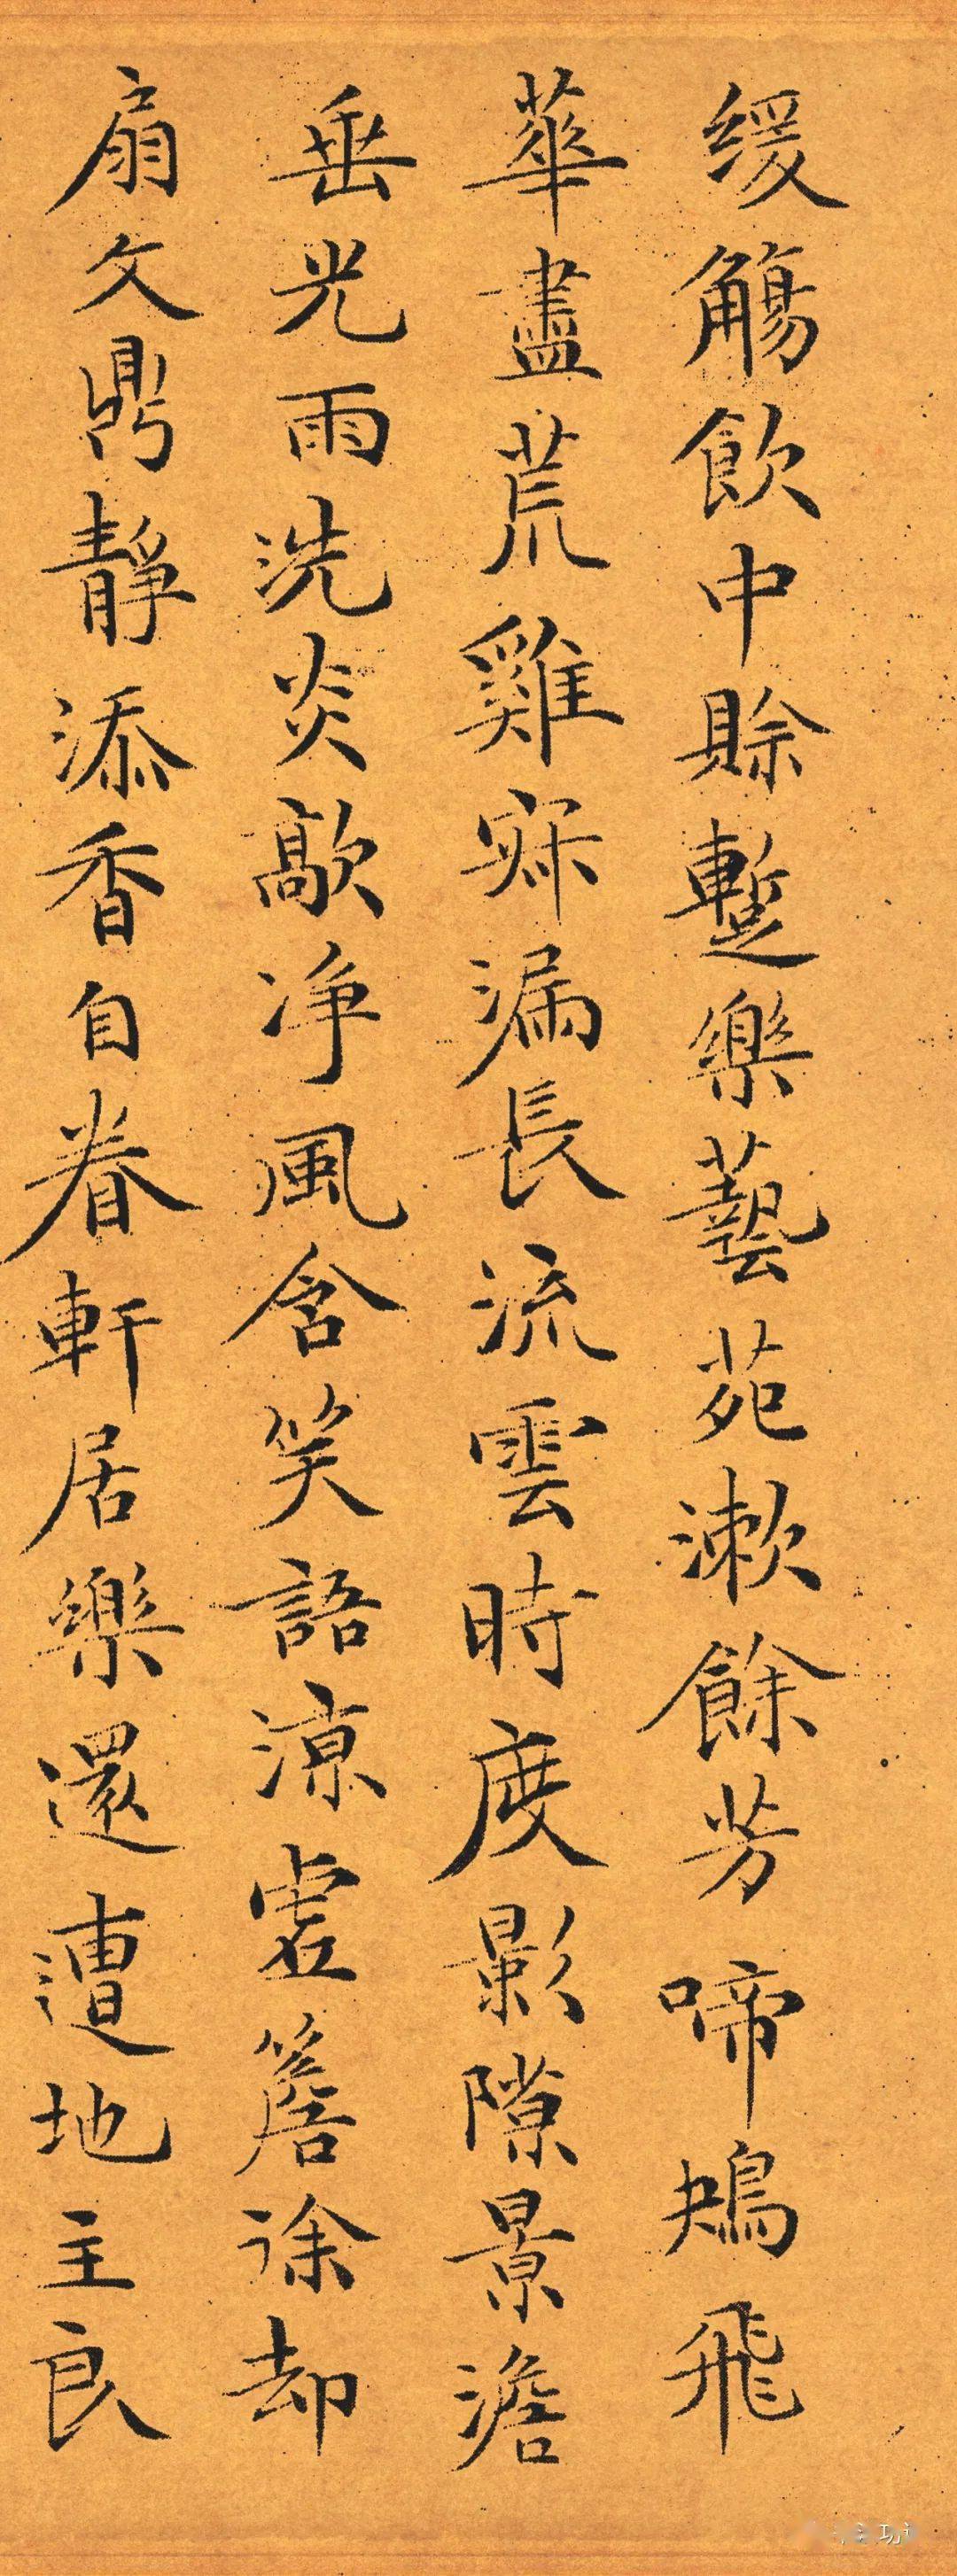 緩觴飲中賒蹔樂藝苑漱餘芳啼鴂飛
華盡荒雞寐漏長流雲時度影隙景澹
垂光雨洗炎歊淨風含笑語涼虛簷徐却
扇文鼎靜添香自眷軒居樂還遭地主良